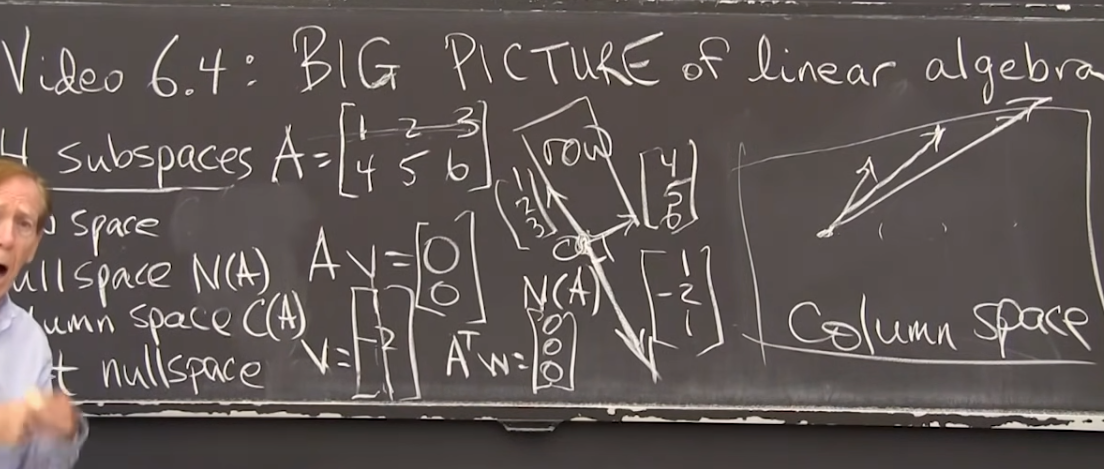 Video 6.4: BIG PICTURE of linear algebra
4 subspaces A = [1 2 3
4 5 6]
space
ullspace N(A)
umn space C(A)
t nullspace
A v = [0
0]
v = [1
-2
1]
Aᵀ w = [0
0
0]
row
[1
2
3]
[4
5
6]
N(A)
[1
-2
1]
Column space